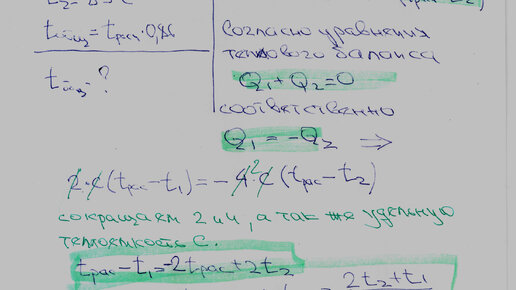 Согласно уравнения
теплового баланса
t рас · 0,86
t ?
Q₁ + Q₂ = 0
соответственно
Q₁ = -Q₂ ⇒
2·c (tрас - t₁) = - 4² c (tрас - t₂)
сокращаем 2 и 4, а так же удельную
теплоемкость C.
tрас - t₁ = -2tрас + 2t₂
2t₂ + t₁